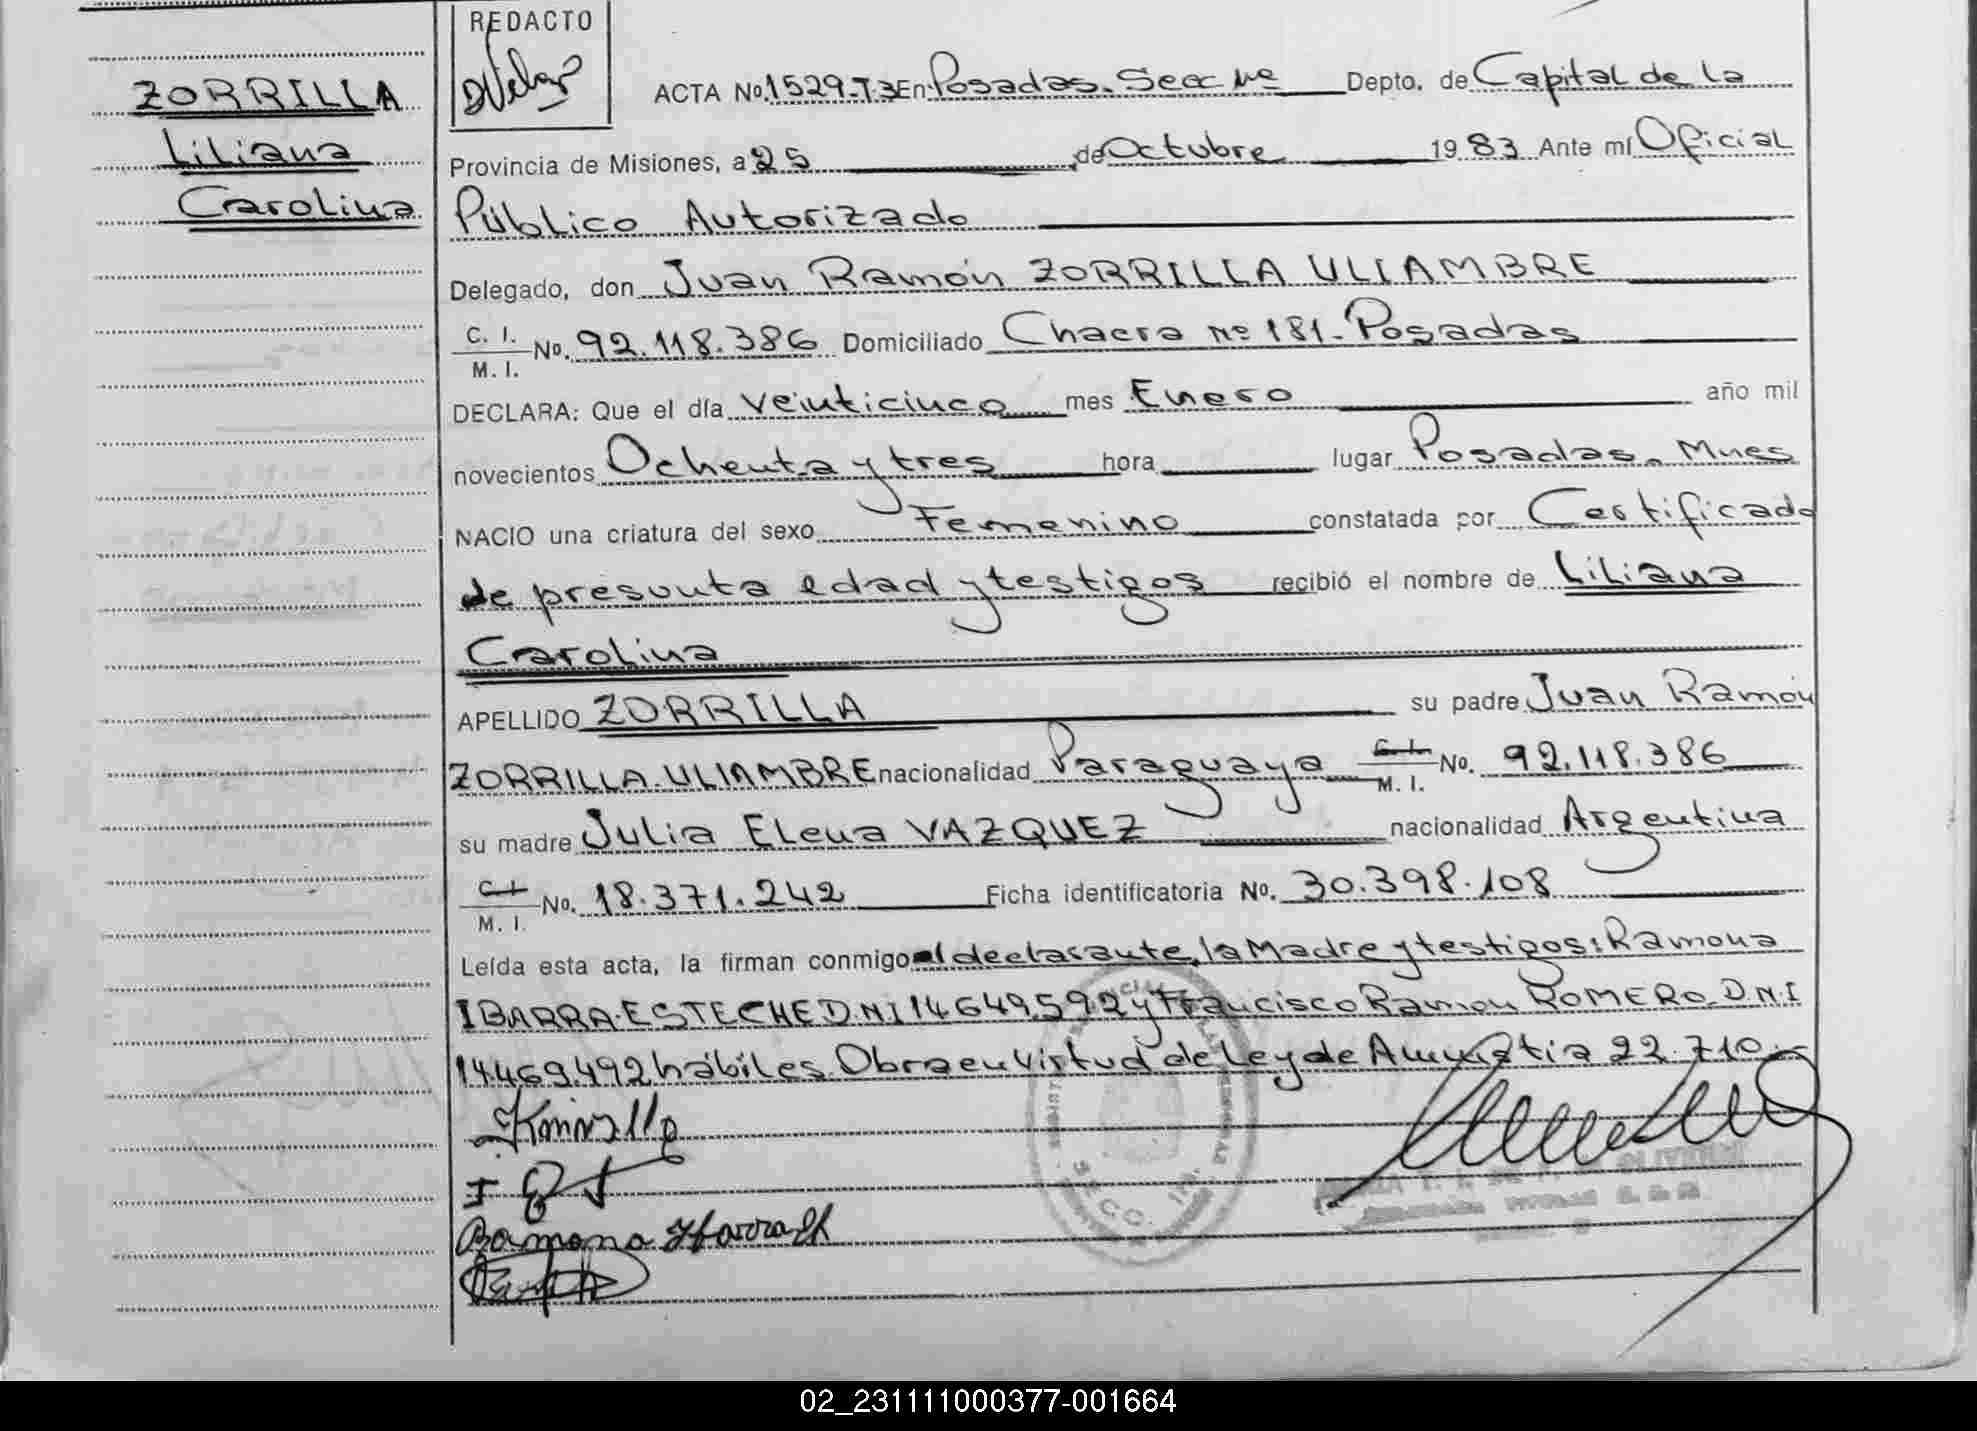 ZORRILLA
Liliana
Carolina
REDACTO
ACTA No. 1529-T3 En Posadas. Secc 1ra Depto. de Capital de La
Provincia de Misiones, a 25 de Octubre 1983 Ante mí Oficial
Público Autorizado
Delegado, don Juan Ramón ZORRILLA ULIAMBRE
C. I. M. I. No. 92.118.386 Domiciliado Chacra Nº 181 - Posadas
DECLARA: Que el día veinticinco mes Enero año mil
novecientos Ochenta y tres hora lugar Posadas. Mnes
NACIO una criatura del sexo Femenino constatada por Certificado
de presunta edad y testigos recibió el nombre de Liliana
Carolina
APELLIDO ZORRILLA su padre Juan Ramón
ZORRILLA ULIAMBRE nacionalidad Paraguaya C. I. M. I. No. 92.118.386
su madre Julia Elena VAZQUEZ nacionalidad Argentina
C. I. M. I. No. 18.371.242 Ficha identificatoria No. 30.398.108
Leída esta acta, la firman conmigo el declarante, la Madre y testigos: Ramona
IBARRA ESTECHE D.N.I 14649.592 y Francisco Ramon ROMERO. D.N.I
14469.492 hábiles. Obra en Virtud de Ley de Amnistia 22.710.-
Ramona Ibarra
02_231111000377-001664